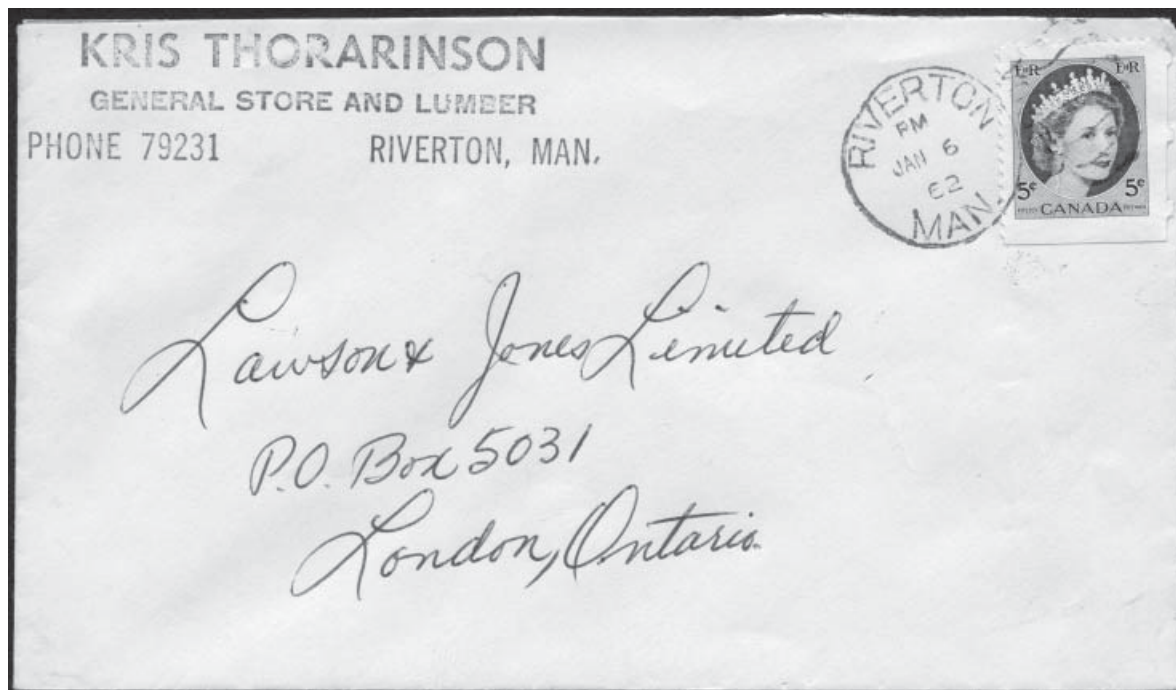 KRIS THORARINSON
GENERAL STORE AND LUMBER
PHONE 79231 RIVERTON, MAN.
RIVERTON
PM
JAN 6
62
MAN.
E R E R
5¢ 5¢
CANADA
Lawson & Jones Limited
P.O. Box 5031
London, Ontario.